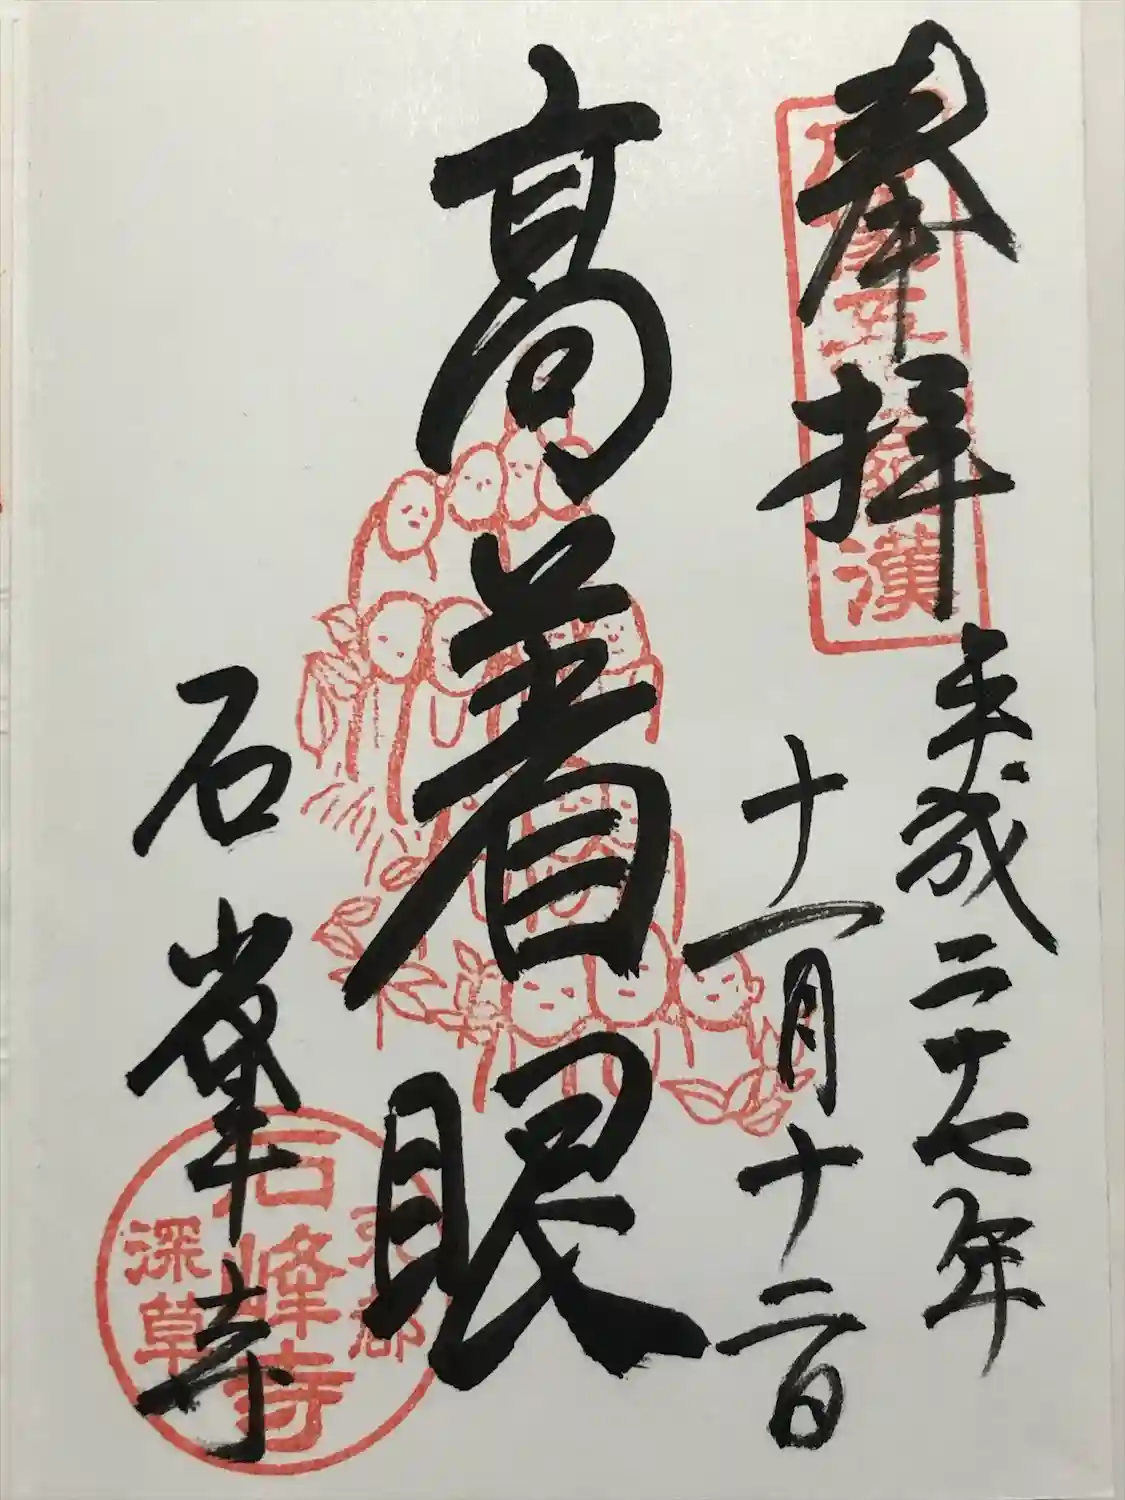 奉拝
石像五百羅漢
平成二十七年
十一月十二日
高着眼
石峯寺
京都
石峰寺
深草